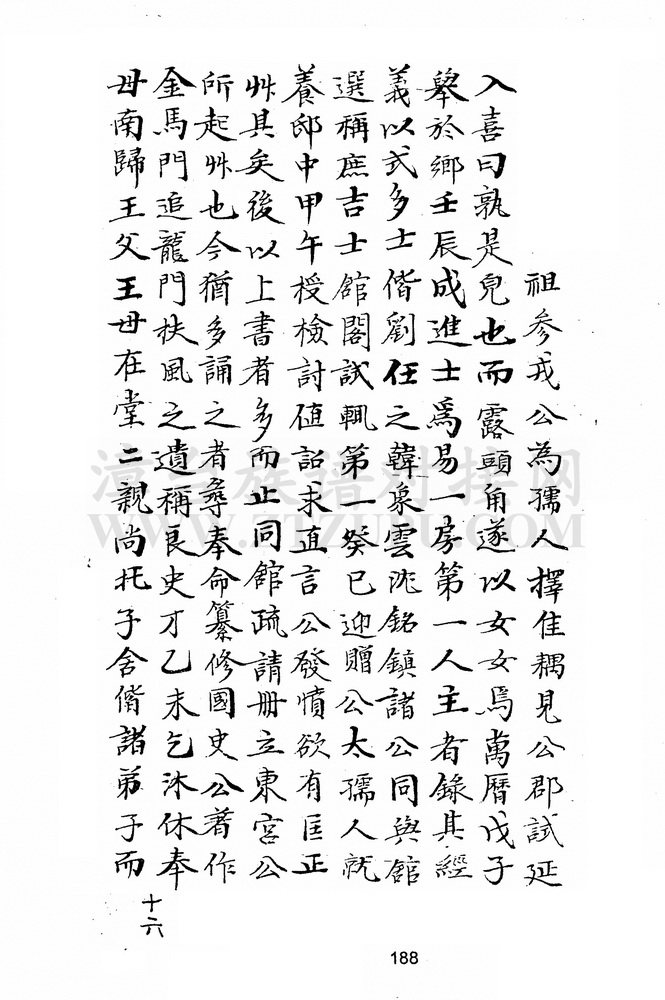 祖參戎公為孺人擇佳耦見公郡試延
入喜曰孰是兒也而露頭角遂以女女焉萬曆戊子
舉於鄉壬辰成進士爲易一房第一人主者錄其經
義以式多士偕劉任之韓泉雲洮銘鎮諸公同與館
選稱庶吉士館閣試輒第一癸巳迎贈公太孺人就
養邸中甲午授檢討值詔求直言公發憤欲有匡正
艸具矣後以上書者多而止同館疏請册立東宮公
所起艸也今猶多誦之者尋奉命纂修國史公著作
金馬門追龍門扶風之遺稱良史才乙未乞沐休奉
毋南歸王父王毋在堂二親尚托子舍偕諸弟子而
十六
188
漳台族谱对接网
WWW.ZTZUPU.COM